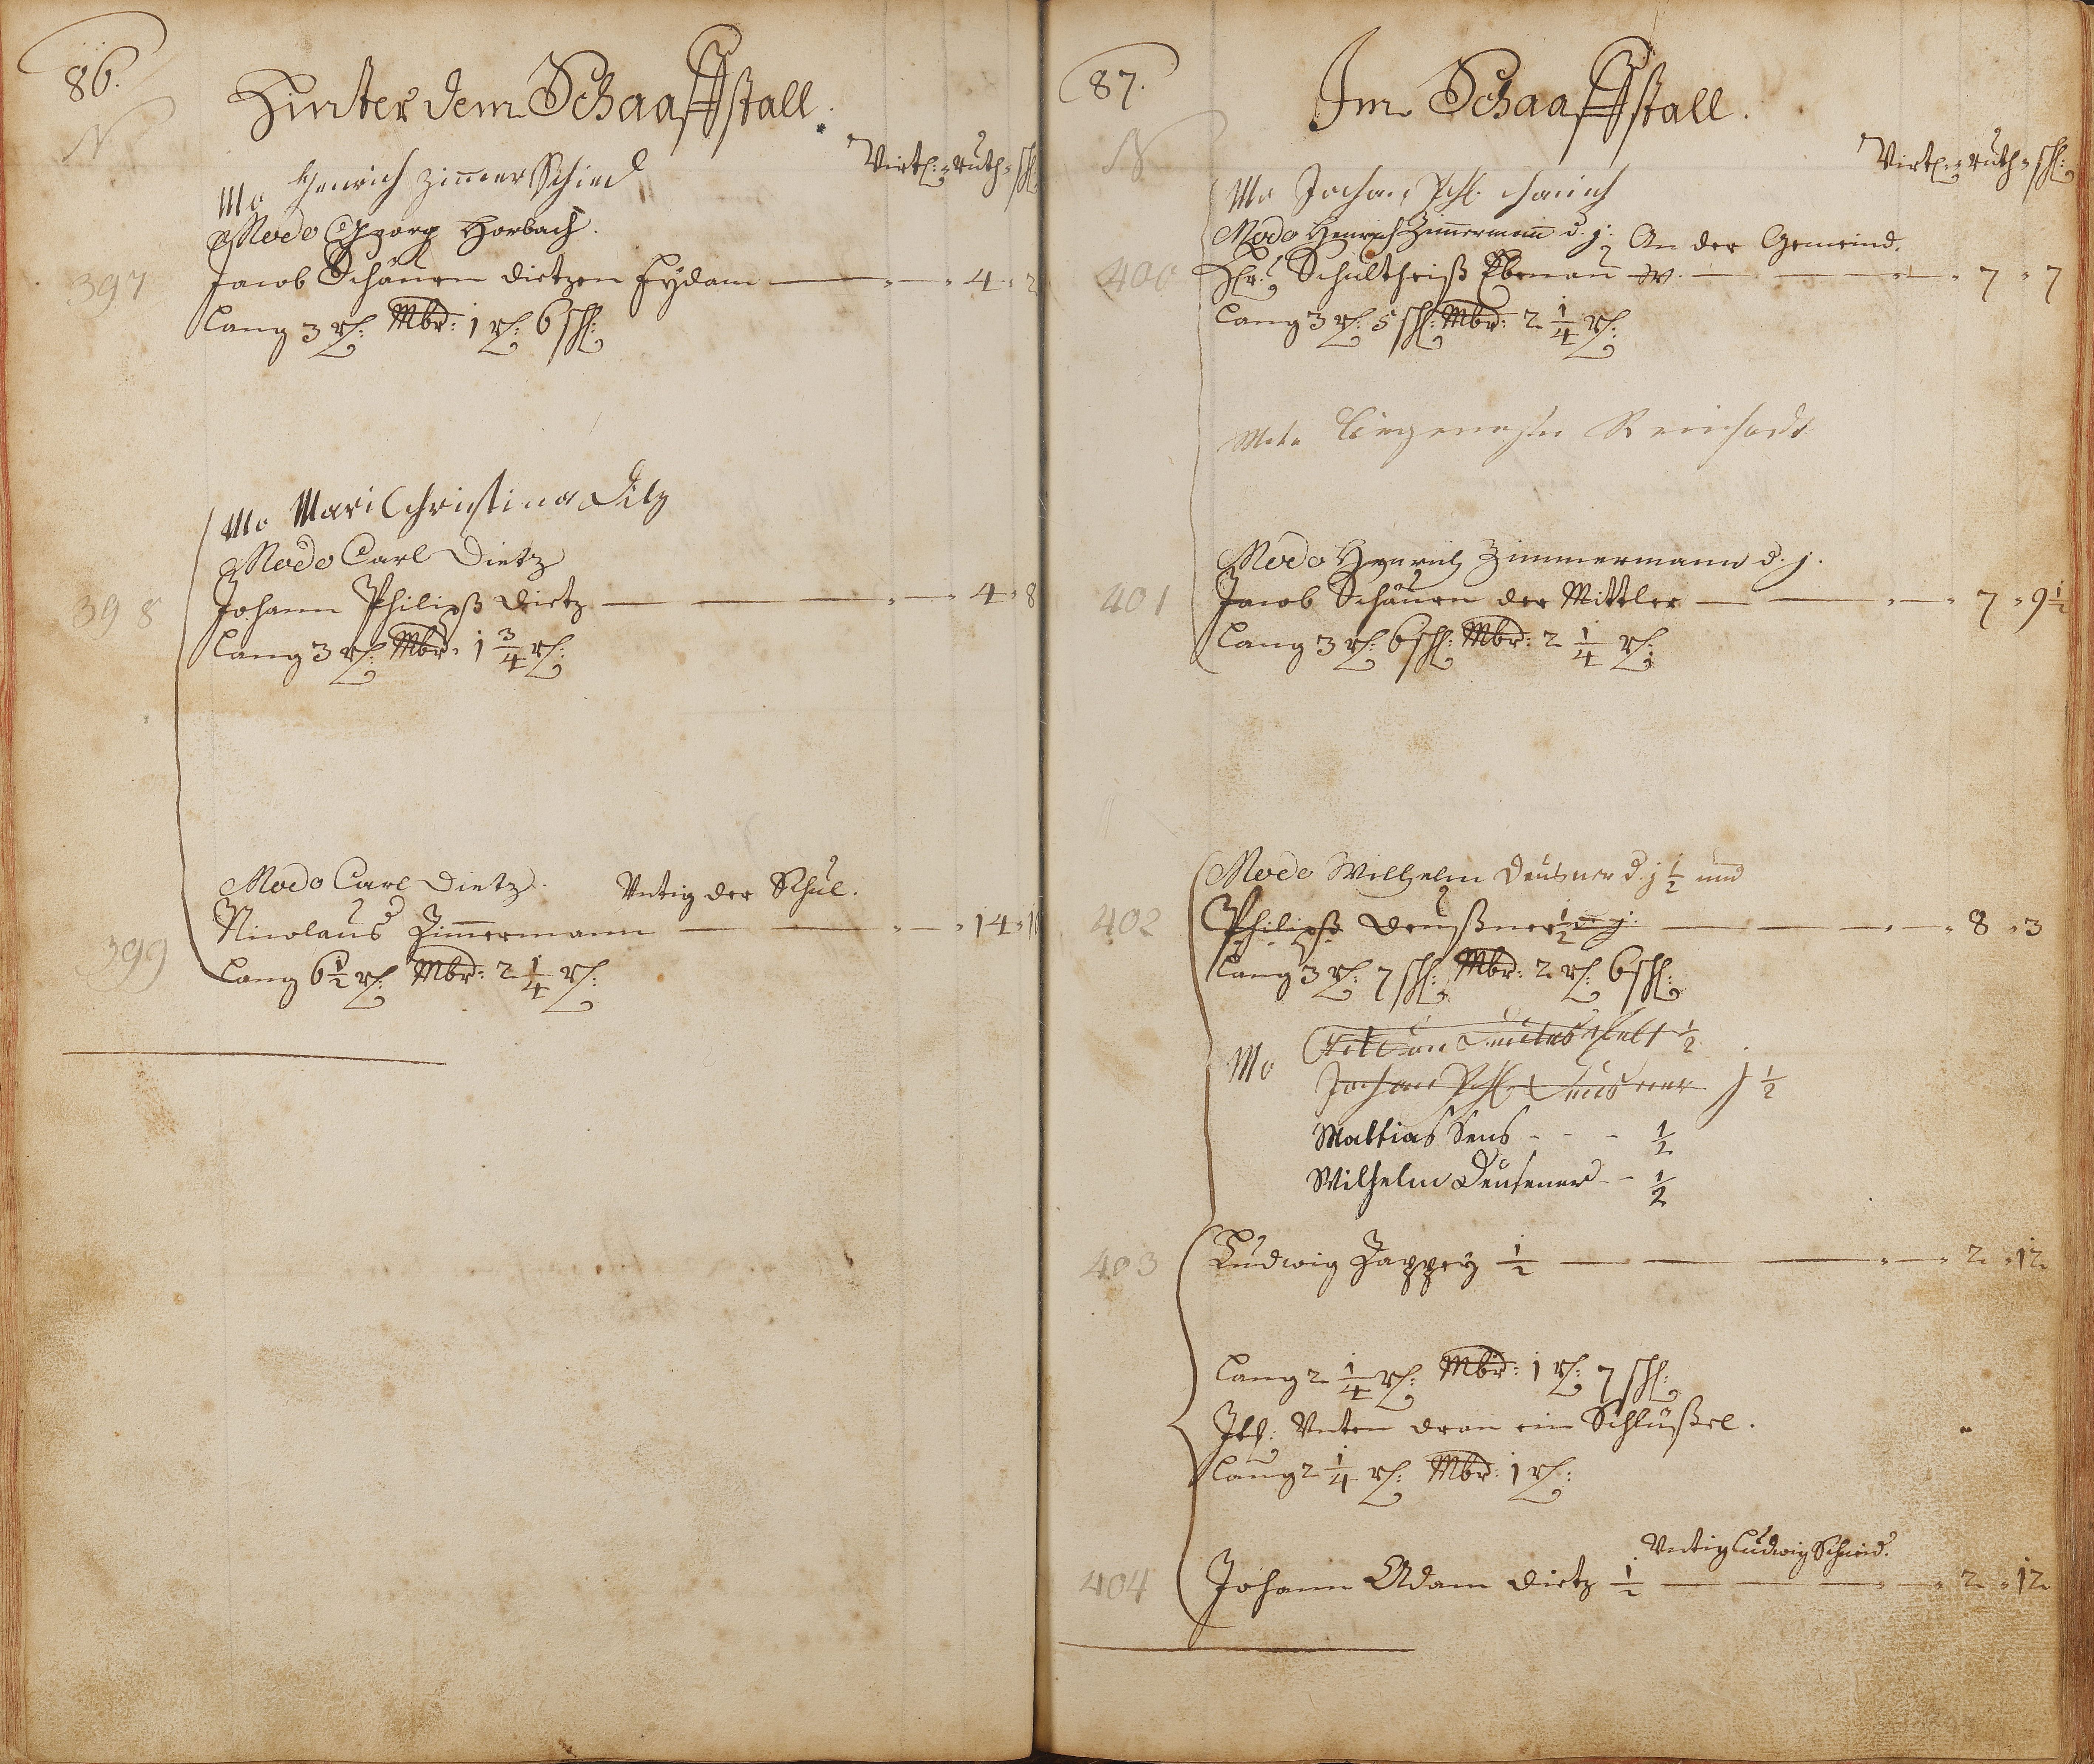 86.
N
Hinter dem Schaaffstall.
Virtl: Ruth schl:
Mo Henrich Zimmer Schied
Modo Georg Horbach.
397 Jacob Schäuen Dietzen Eydam 4 2
Lang 3 rl: Mbr: 1 rl: 6 schl:
Mo Mari Christina Ditz
Modo Carl Dietz
398 Johann Philipß Dietz 4 8
Lang 3 rl: Mbr: 1 3/4 rl:
Modo Carl Dietz. Untig der Schul.
399 Nicolaus Zimmermann 14
Lang 6 1/2 rl: Mbr: 2 1/4 rl:
87.
N
Im Schaaffstall.
Virtl: Ruth schl:
Mo Johan Phl
Modo Henrich Zimmermann d. j. An der Gemeind.
400 Hr: Schultheiß Ebenau W. 7 7
Lang 3 rl: 5 schl: Mbr: 2 1/4 rl:
Modo Reinhardt
Modo Henrich Zimmermann d. j.
401 Jacob Schäuen der Mittler 7 9 1/2
Lang 3 rl: 6 schl: Mbr: 2 1/4 rl:
Modo Wilhelm Deusner d. j 1/2 und
402 Philipß Deußner 1/2 d. j. 8 3
Lang 3 rl: 7 schl: Mbr: 2 rl: 6 schl:
Mo 1/2
Johan Phl Deusner j 1/2
Mattias Sens - - - 1/2
Wilhelm Deusener - - 1/2
403 Ludwig Zappey 1/2 2 12
Lang 2 1/4 rl: Mbr: 1 rl: 7 schl:
Itl: Unten dran ein Schlüßel.
Lang 2 1/4 rl: Mbr: 1 rl:
Untig Ludwig Schmid.
404 Johann Adam Dietz 1/2 2 12